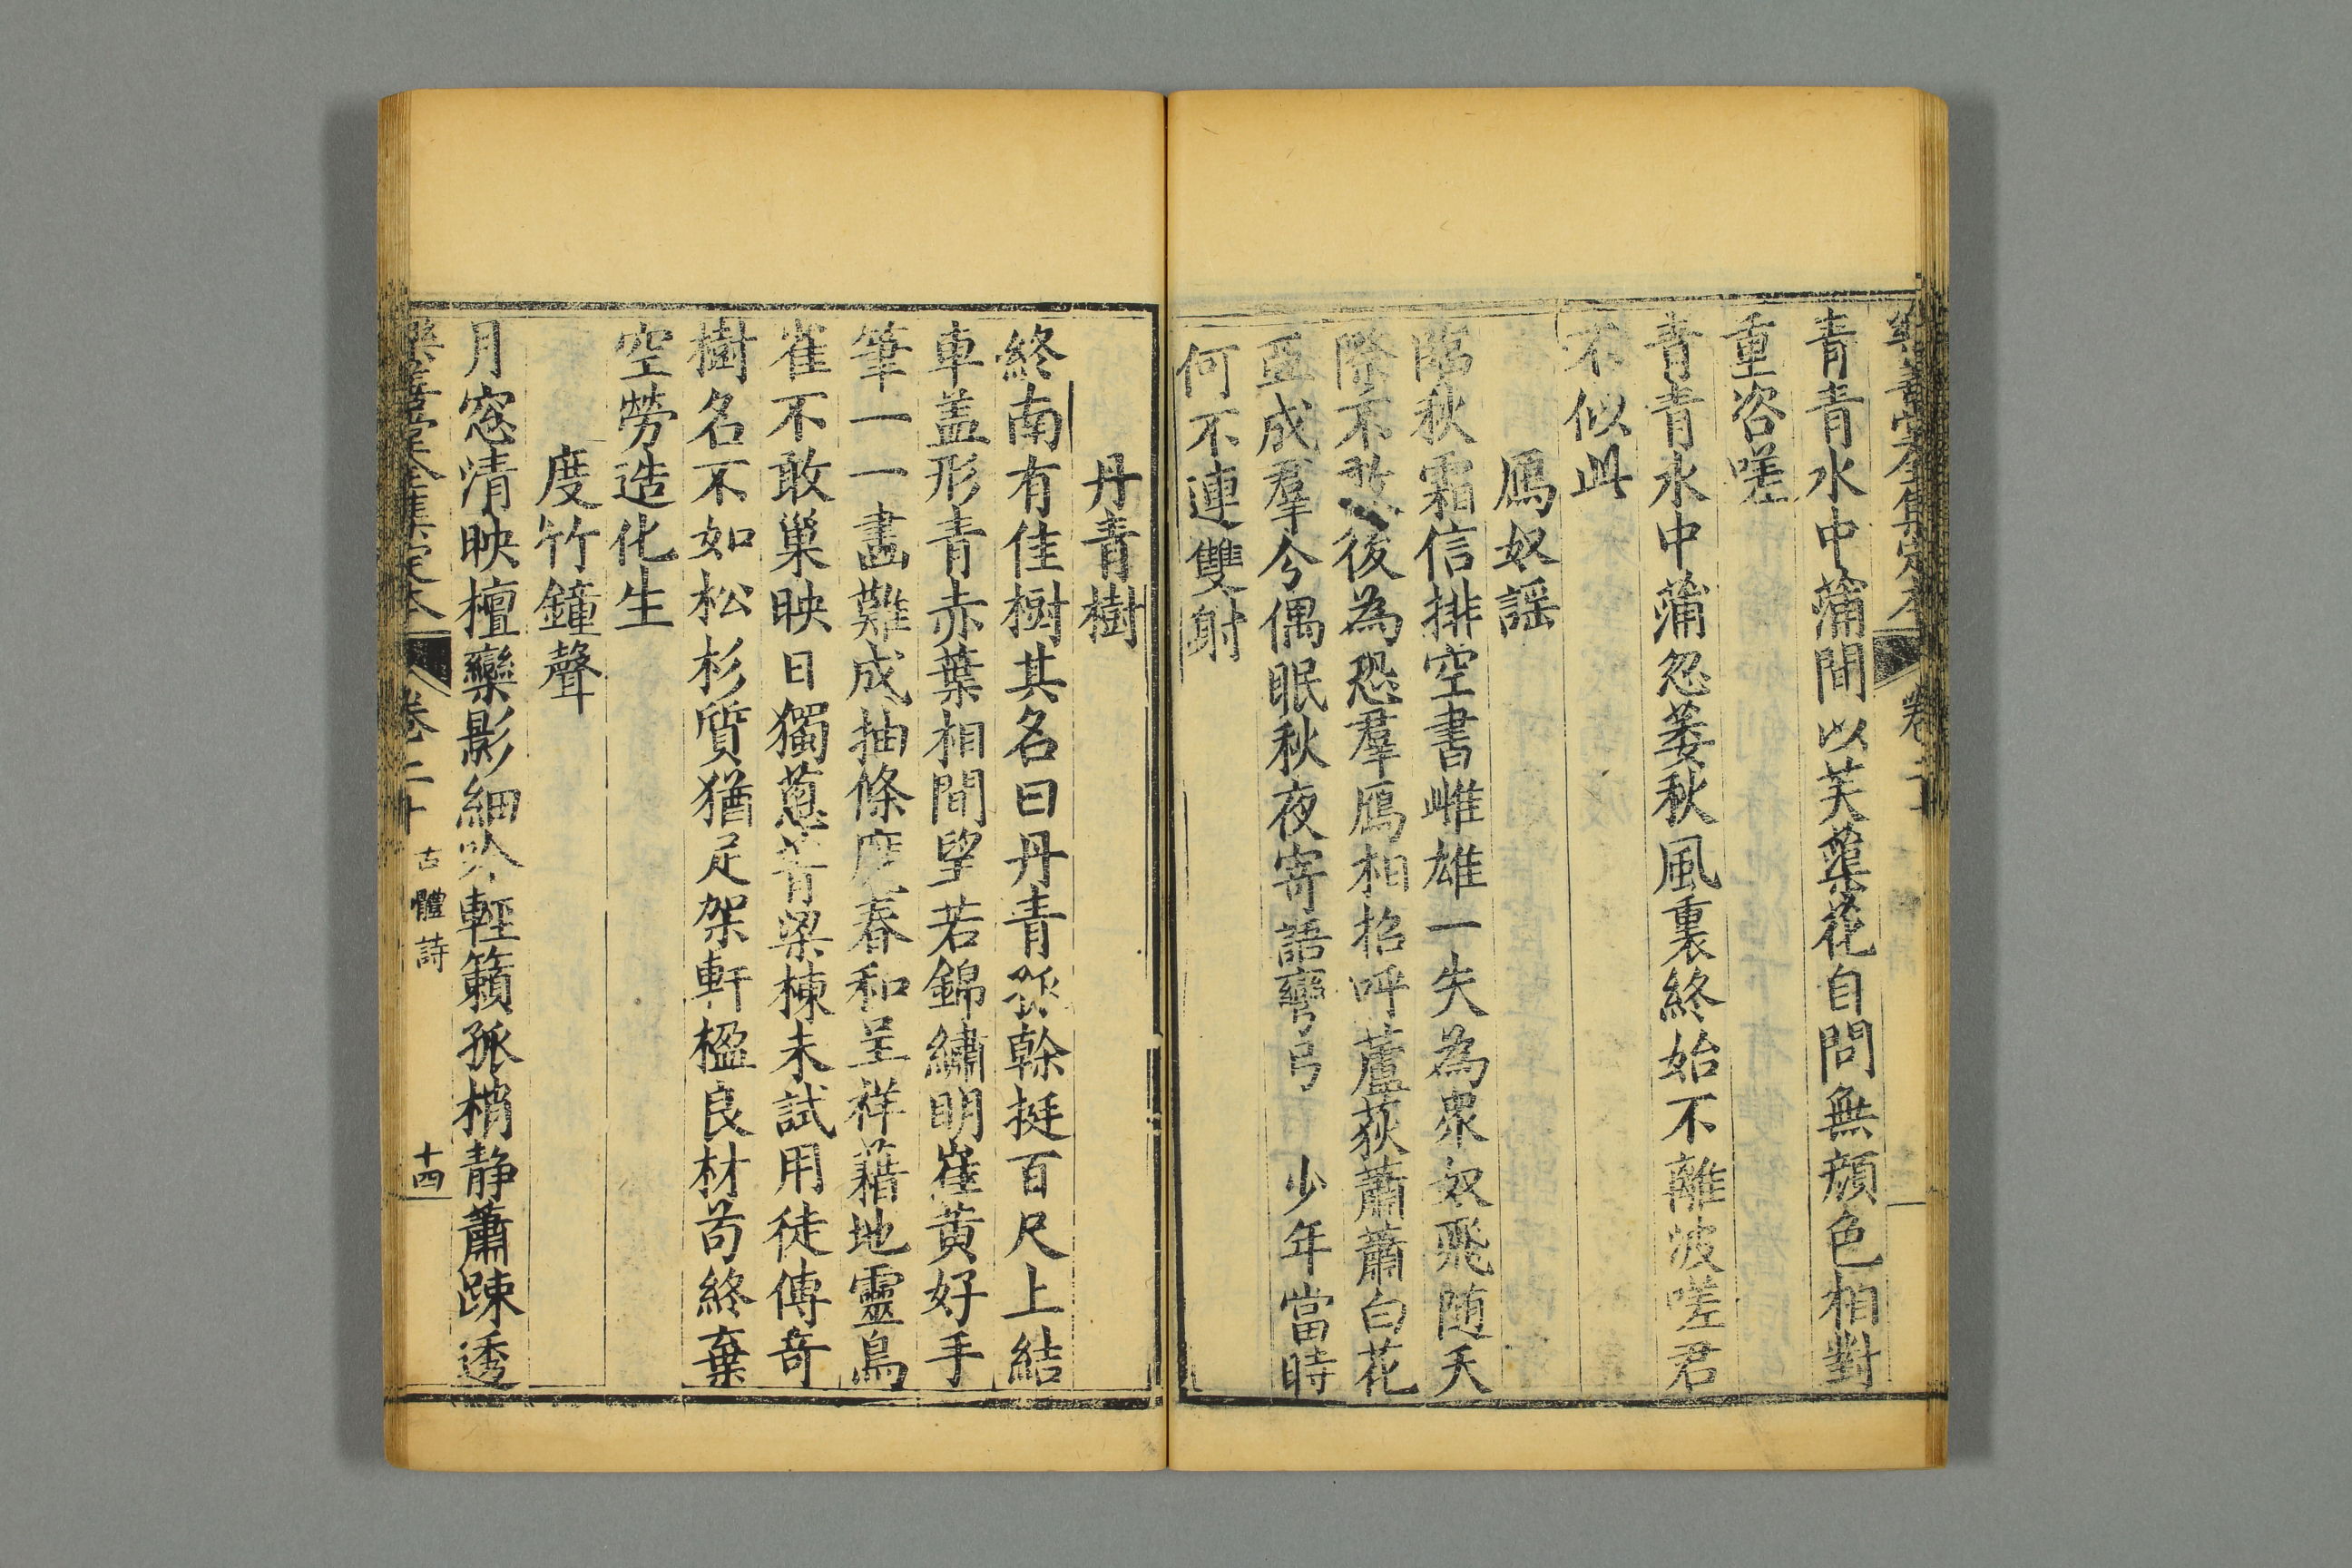 青青水中蒲間以芙蕖花自問無顏色相對
重咨嗟
青青水中蒲忽萎秋風裏終始不離波嗟君
不似此
鴈奴謡
臨秋霜信排空書雌雄一失為衆奴飛随天
際不敢後為恐羣鴈相招呼蘆荻蕭蕭白花
亞成羣今偶眠秋夜寄語彎弓少年當時
何不連雙射
丹青樹
終南有佳樹其名曰丹青幹挺百尺上結
車盖形青赤葉相間望若錦繡明崔黄好手
筆一一畵難成抽條應春和呈祥藉地靈鳥
雀不敢巢映日獨蔥菁梁棟未試用徒傳奇
樹名不如松杉質猶足架軒楹良材苟終棄
空勞造化生
度竹鐘聲
月窓清映檀欒影細吟輕籟孤梢静蕭踈透
樂善堂全集定本 卷二十 古體詩 十四